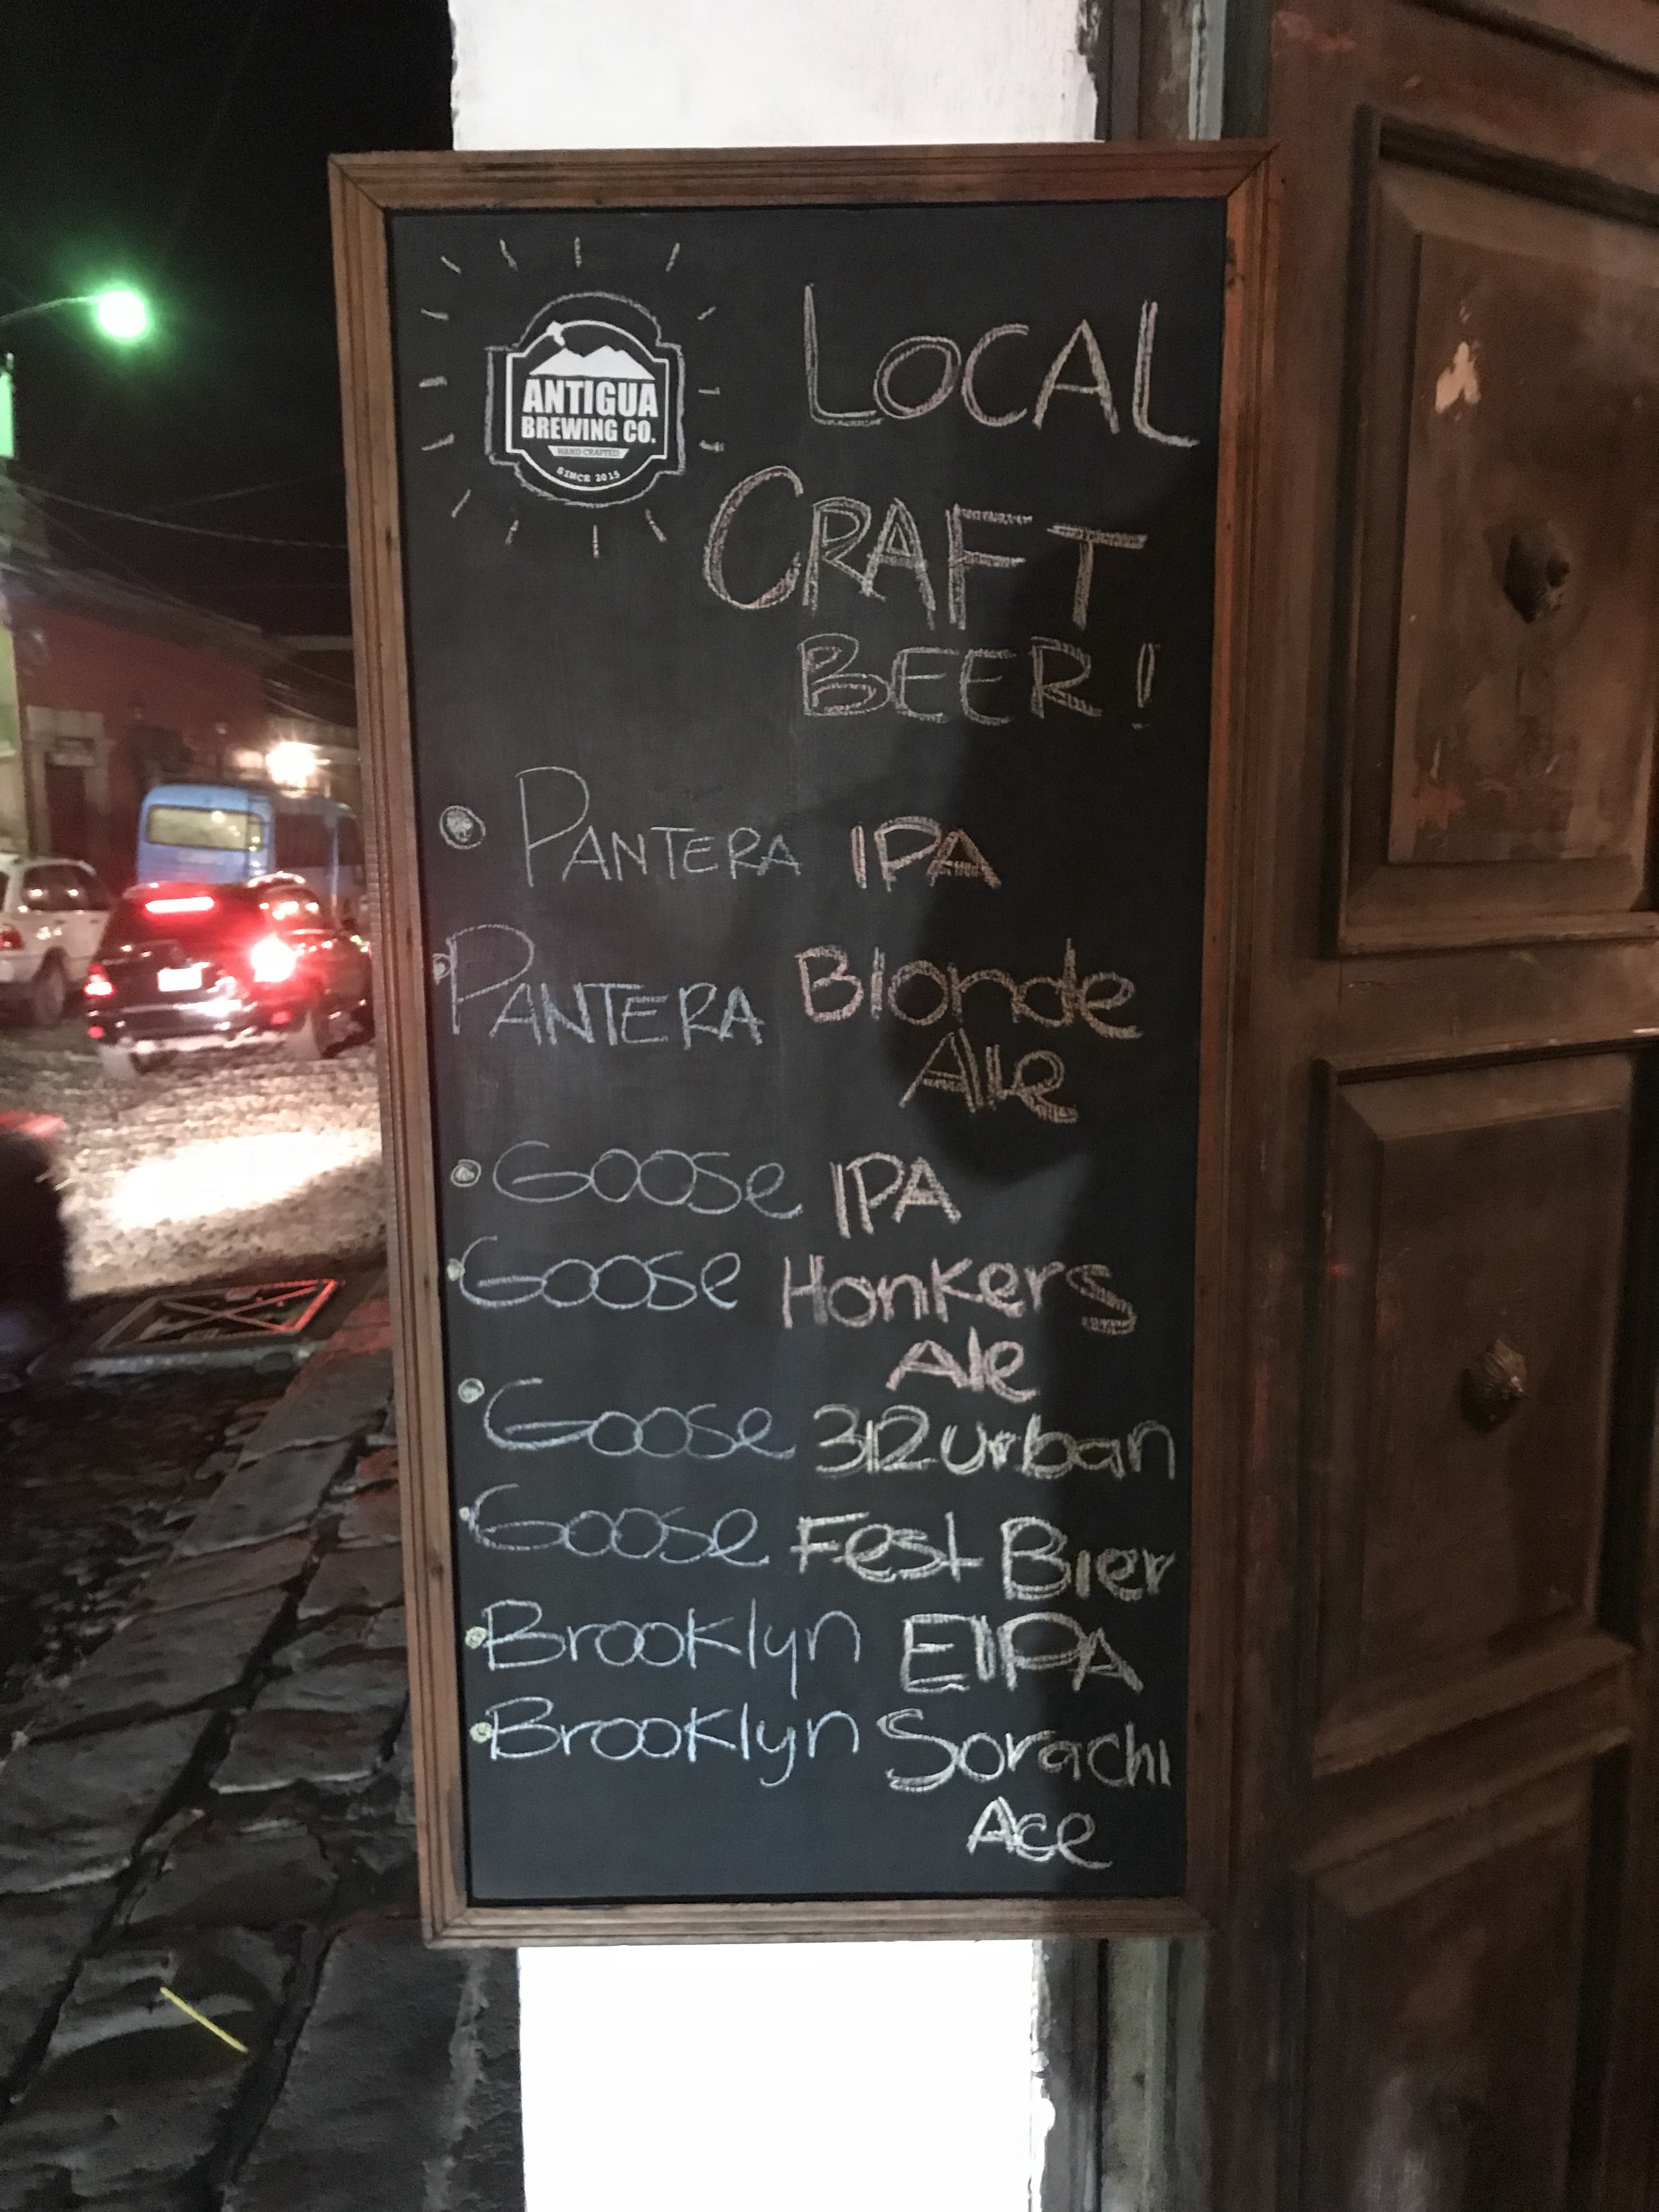 ANTIGUA
BREWING CO.
HAND CRAFTED
SINCE 2015
LOCAL
CRAFT
BEER!
PANTERA IPA
PANTERA Blonde
Ale
Goose IPA
Goose Honkers
Ale
Goose 312urban
Goose Fest Bier
Brooklyn EIPA
Brooklyn Sorachi
Ace